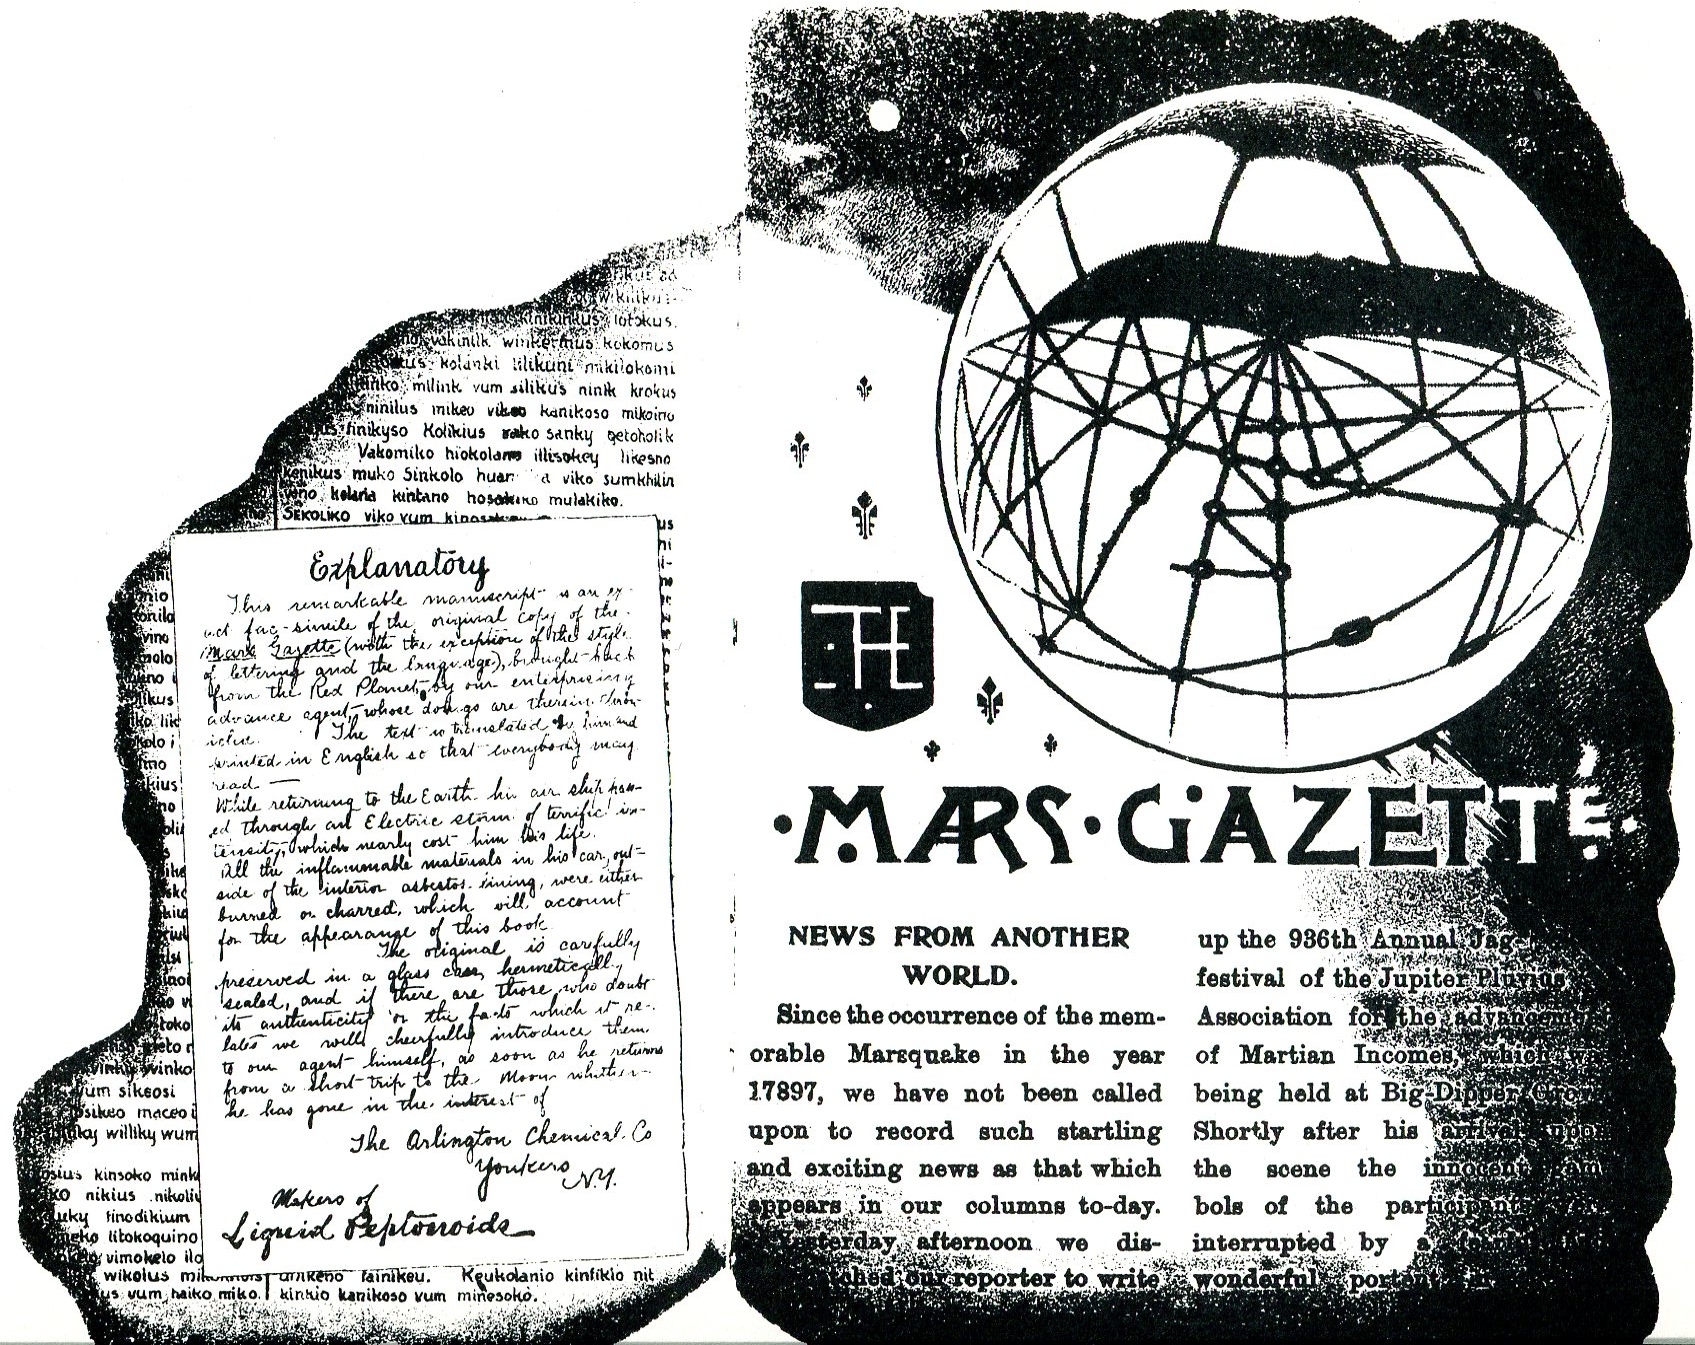 ikus ad
wikiliku
kinikinkus lotokus.
vakinlik winkermus kokomus
kus kolanki lilikuni mikilokomi
inko milink vum silikus ninik krokus
ninilus mikeo vikeo kanikoso mikoino
finikyso Kolikius rako sanky getoholik
Vakomiko hiokolams illisokey likesno
kenikus muko Sinkolo huan a viko sumkhilin
veno kelaria kintano hosakino mulakiko.
SEKOLIKO viko vum
Explanatory
This remarkable manuscript is an ex-
act fac-simile of the original copy of the
Mars Gazette (with the exception of the style
of lettering and the language), brought back
from the Red Planet by our enterprising
advance agent, whose doings are therein chron-
icled. The text is translated by him and
printed in English so that everybody may
read —
While returning to the Earth his air ship pass-
ed through an Electric storm of terrific in-
tensity, which nearly cost him his life.
All the inflammable materials in his car, out-
side of the interior asbestos lining, were either
burned or charred, which will account
for the appearance of this book.
The original is carefully
preserved in a glass case, hermetically
sealed, and if there are those who doubt
its authenticity or the facts which it re-
lates we will cheerfully introduce them
to our agent himself, as soon as he returns
from a short trip to the Moon whither
he has gone in the interest of
The Arlington Chemical Co
Yonkers
N.Y.
Makers of
Liquid Peptonoids
vum sikeosi
osikeo maceo i
uky williky wum
osius kinsoko mink
ko nikius nikoliv
uky finodikium
meko litokoquino
vimokelo ilo
wikolus
us vum haiko miko.
umkeno fainikeu. Keukolanio kinfikio nit
kinkio kanikoso vum minesoko.
·MARS·GAZETTE.
NEWS FROM ANOTHER
WORLD.
Since the occurrence of the mem-
orable Marsquake in the year
17897, we have not been called
upon to record such startling
and exciting news as that which
appears in our columns to-day.
Yesterday afternoon we dis-
tched our reporter to write
up the 936th Annual Jag-
festival of the Jupiter Pluvius
Association for the advancement
of Martian Incomes, which was
being held at Big-Dipper Grove
Shortly after his arrival upon
the scene the innocent gam
bols of the participants were
interrupted by a
wonderful portent